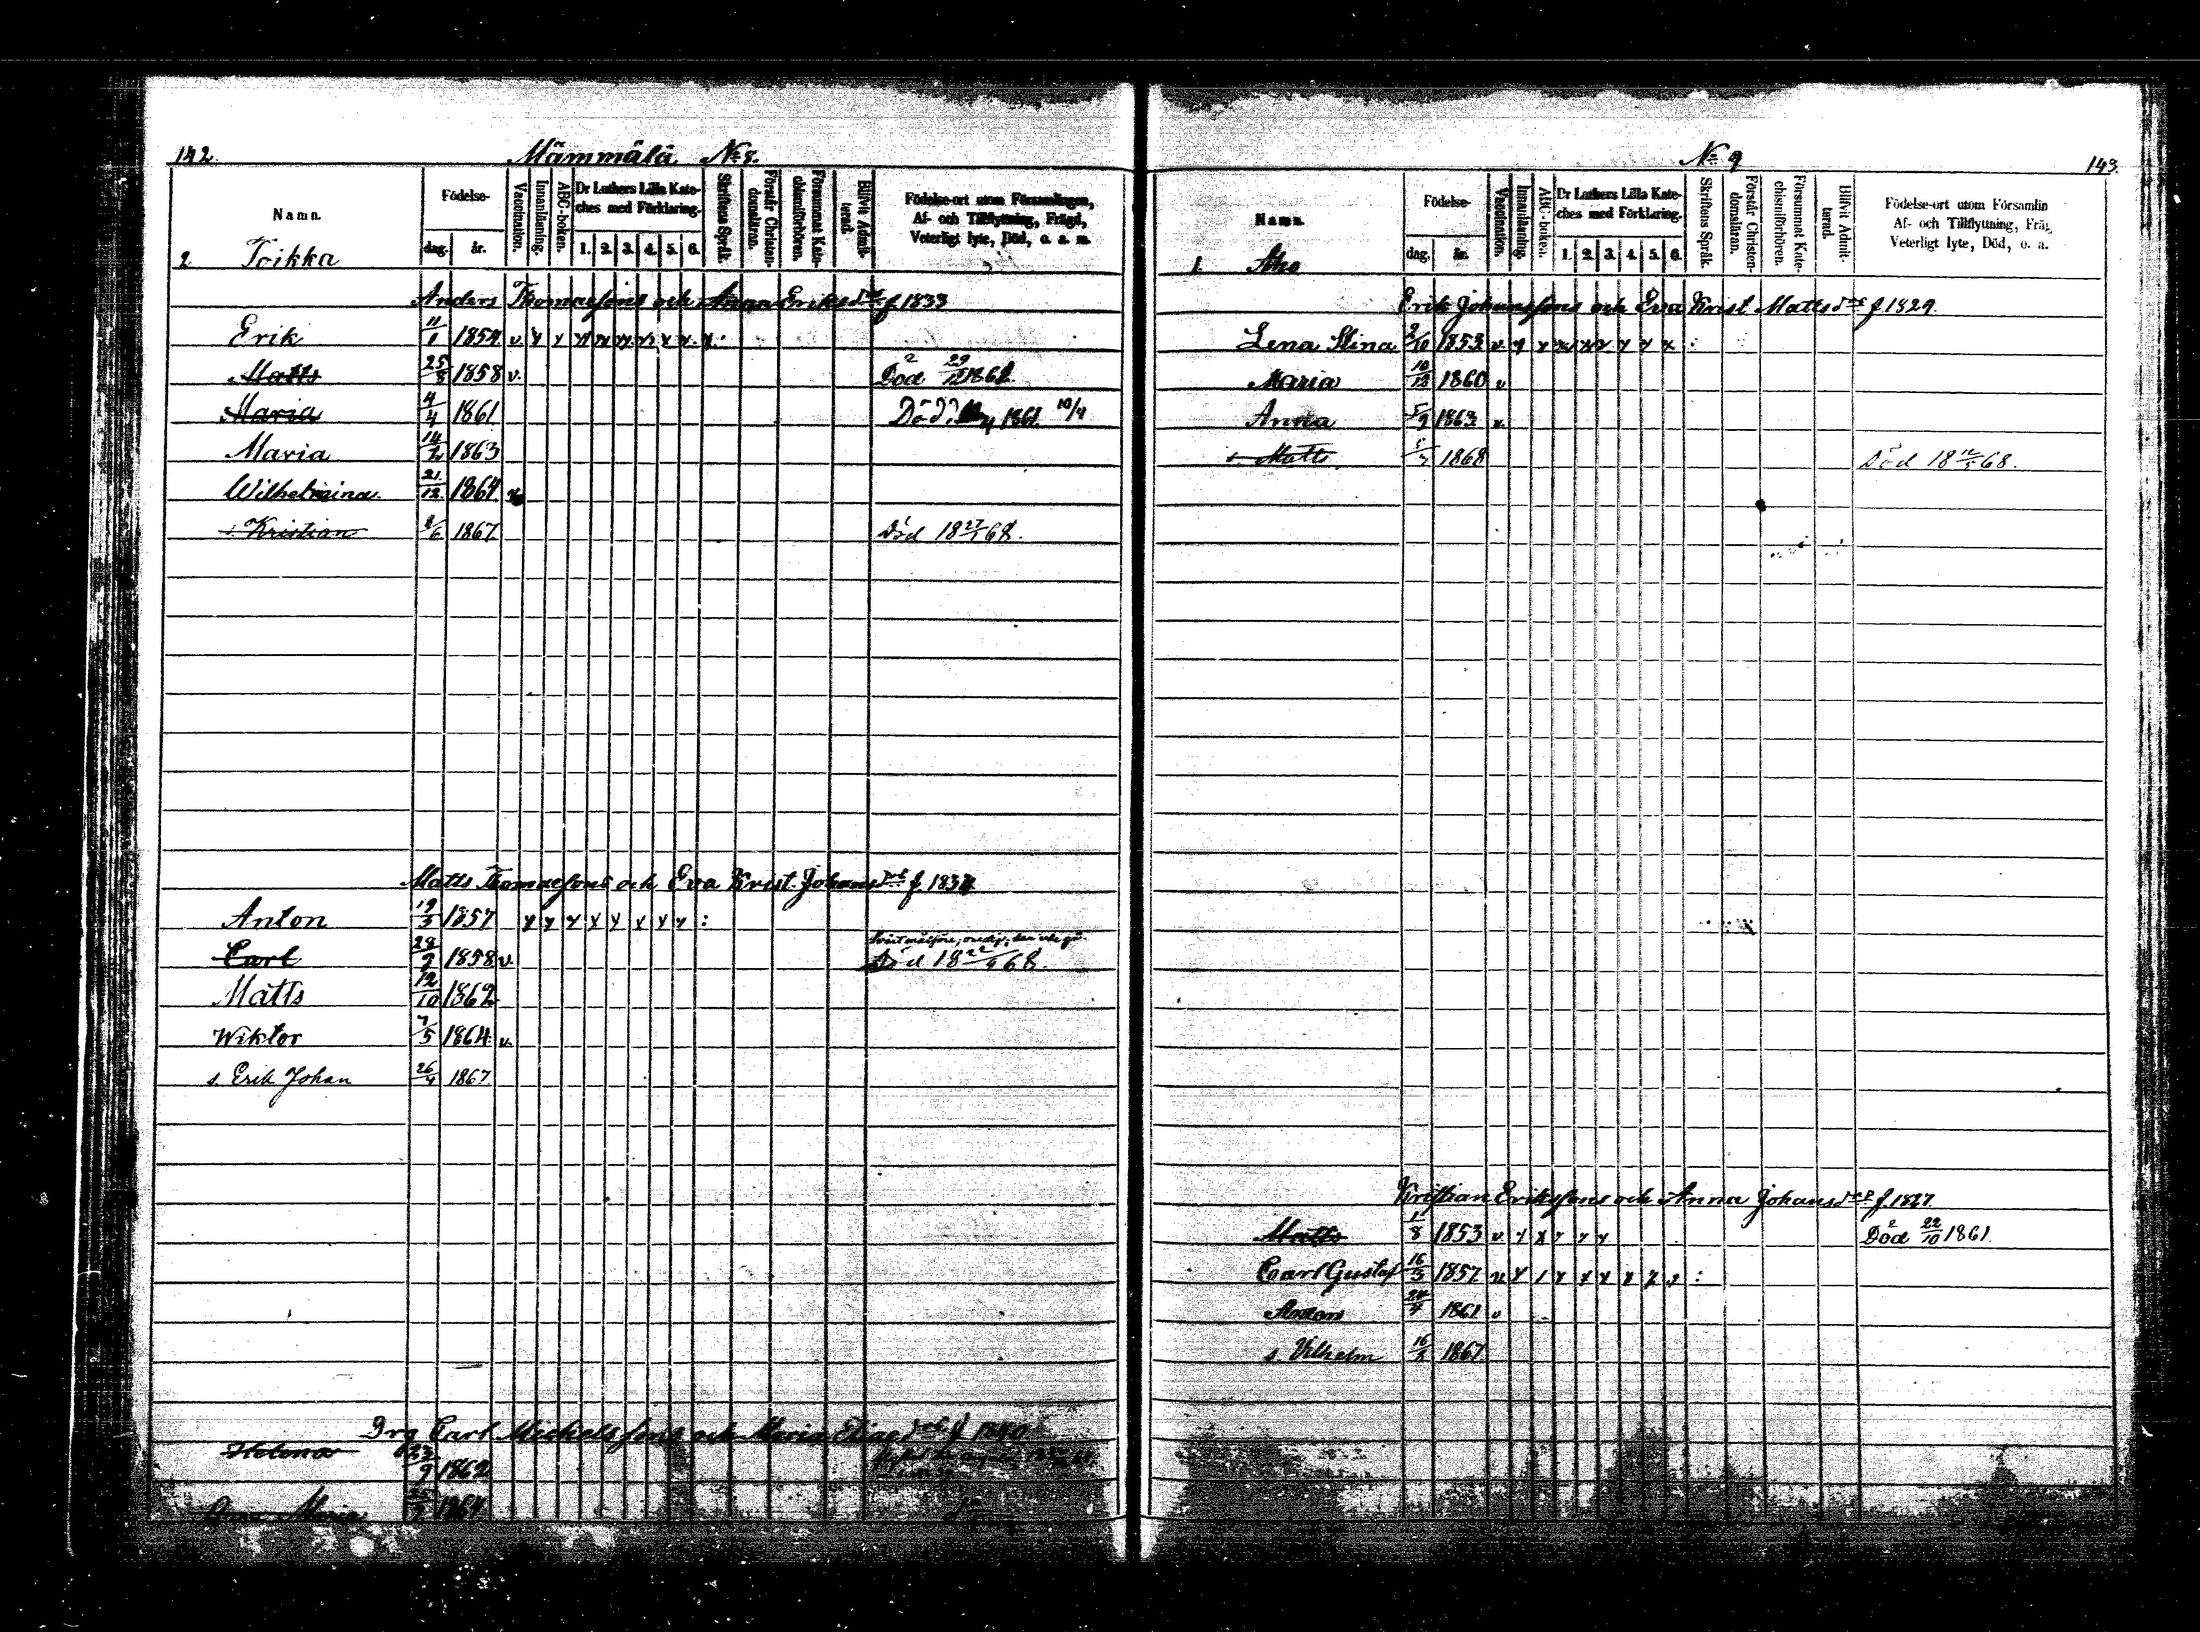 142. Mämmälä No 8.
Namn. Födelse- Vaccination. Innanläsning. ABC-boken. Dr Luthers Lilla Kateches med Förklaring. Skriftens Språk. Förstår Christendomsläran. Försummat Katechismiförhören. Blifvit Admitterad. Födelse-ort utom Församlingen, Af- och Tillflyttning, Frägd, Veterligt lyte, Död, o. a. m.
dag. år. 1. 2. 3. 4. 5. 6.
2 Toikka
Anders Thomaesons och Anna Eriksdrs f 1833
Erik 11/1 1854 v x x x x x x x x x x
Matts 25/8 1858 v. Död 29/12 1862
Maria 4/4 1861 Död 1861 10/4
Maria 14/2 1863
Wilhelmina 21/12 1864
s. Kristian 2/6 1867 Död 18 27/1 68.
Matts Thomaesons och Eva Krist. Johansdrs f 1834
Anton 19/3 1857 x x x x x x x x :
Carl 28/9 1858 v. Död 18 22/4 68.
Matts 12/10 1862
Wiktor 7/5 1864 v.
s. Erik Johan 26/4 1867
Drg Carl Michelssons och Maria Eliaedrs f 1840
Helena 23/9 1862
Anna Maria 1864
No 9 143.
Namn. Födelse- Vaccination. Innanläsning. ABC-boken. Dr Luthers Lilla Kateches med Förklaring. Skriftens Språk. Förstår Christendomsläran. Försummat Katechismiförhören. Blifvit Admitterad. Födelse-ort utom Församlin Af- och Tillflyttning, Fräg Veterligt lyte, Död, o. a.
dag. år. 1. 2. 3. 4. 5. 6.
1. Aho
Erik Johanssons och Eva Krist Mattsdrs f 1829.
Lena Stina 2/10 1853 v x x x x x x x x :
Maria 10/12 1860 v
Anna 5/9 1863 v.
s. Matts 1868 Död 18 12/5 68.
Kristian Erikssons och Anna Johansdrs f. 1827
Matts 1/8 1853 v x x x x x Död 22/10 1861.
Carl Gustaf 16/3 1857 v x x x x x x x x :
Anton 24/4 1861 v
s. Vilhelm 16/1 1867